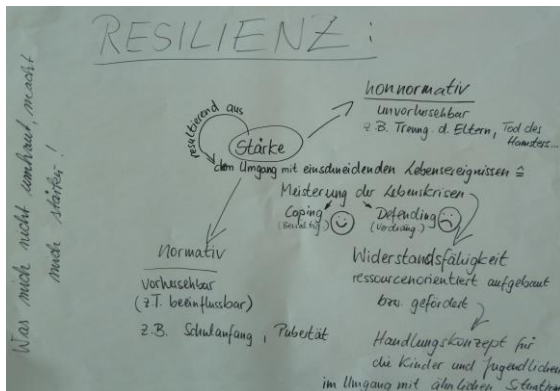 RESILIENZ:
Was mich nicht umhaut, macht
mich stärker!
nonnormativ
unvorhersehbar
z.B. Trenng. d. Eltern, Tod des
Hamsters...
resultierend aus
Stärke
dem Umgang mit einschneidenden Lebensereignissen ≙
Meisterung der Lebenskrisen
Coping Defending
(Bewältig.) (Verdräng.)
normativ
vorhersehbar
(z.T. beeinflussbar)
z.B. Schulanfang, Pubertät
Widerstandsfähigkeit
ressourcenorientiert aufgebaut
bzw. gefördert
Handlungskonzept für
die Kinder und Jugendlichen
im Umgang mit ähnlichen